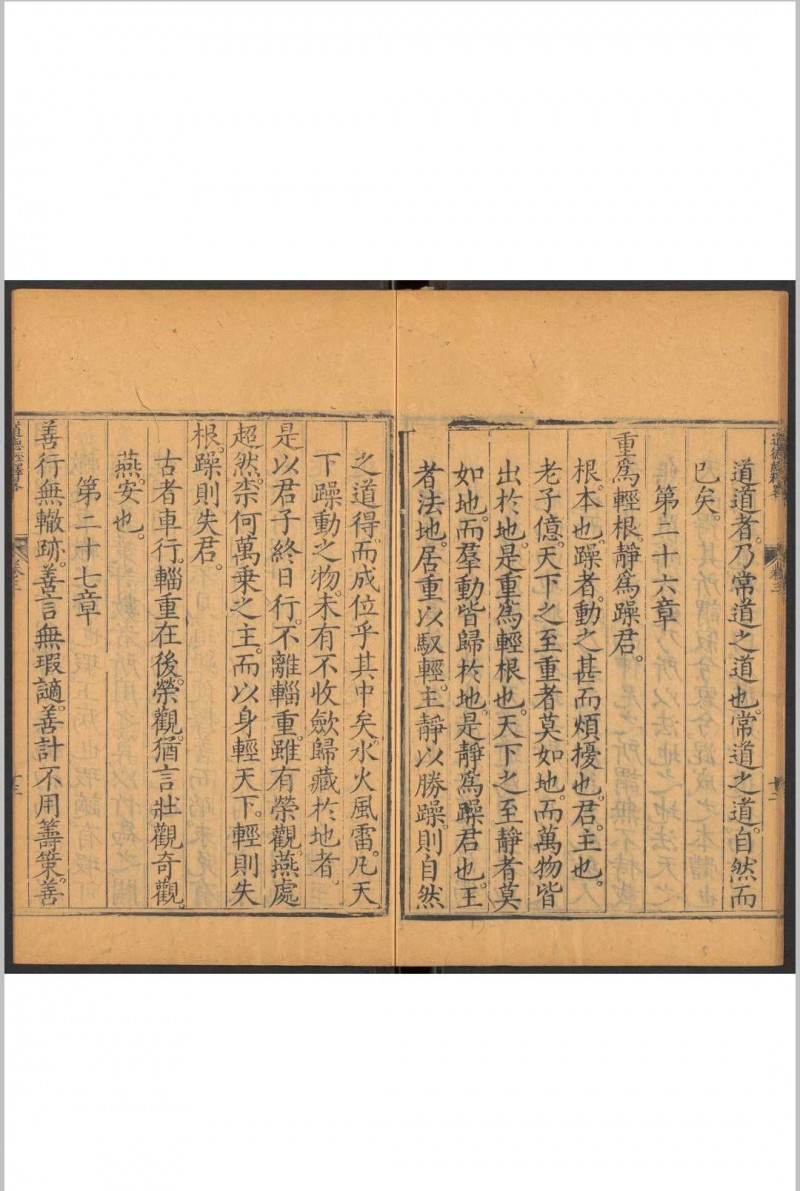 道道者。乃常道之道也。常道之道。自然而
已矣。
第二十六章
重爲輕根。靜爲躁君。
根。本也。躁者。動之甚而煩擾也。君。主也。
老子億。天下之至重者莫如地。而萬物皆
出於地。是重爲輕根也。天下之至靜者莫
如地。而羣動皆歸於地。是靜爲躁君也。王
者法地。居重以馭輕。主靜以勝躁。則自然
之道得。而成位乎其中矣。水火風雷。凡天
下躁動之物。未有不收斂歸藏於地者。
是以君子終日行。不離輜重。雖有榮觀。燕處
超然。柰何萬乘之主。而以身輕天下。輕則失
根。躁則失君。
古者車行。輜重在後。榮觀。猶言壯觀奇觀。
燕。安也。
第二十七章
善行無轍跡。善言無瑕讁。善計不用籌策。善